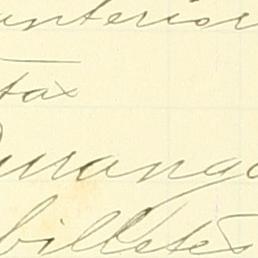 anterior
tax
Durango
billetes